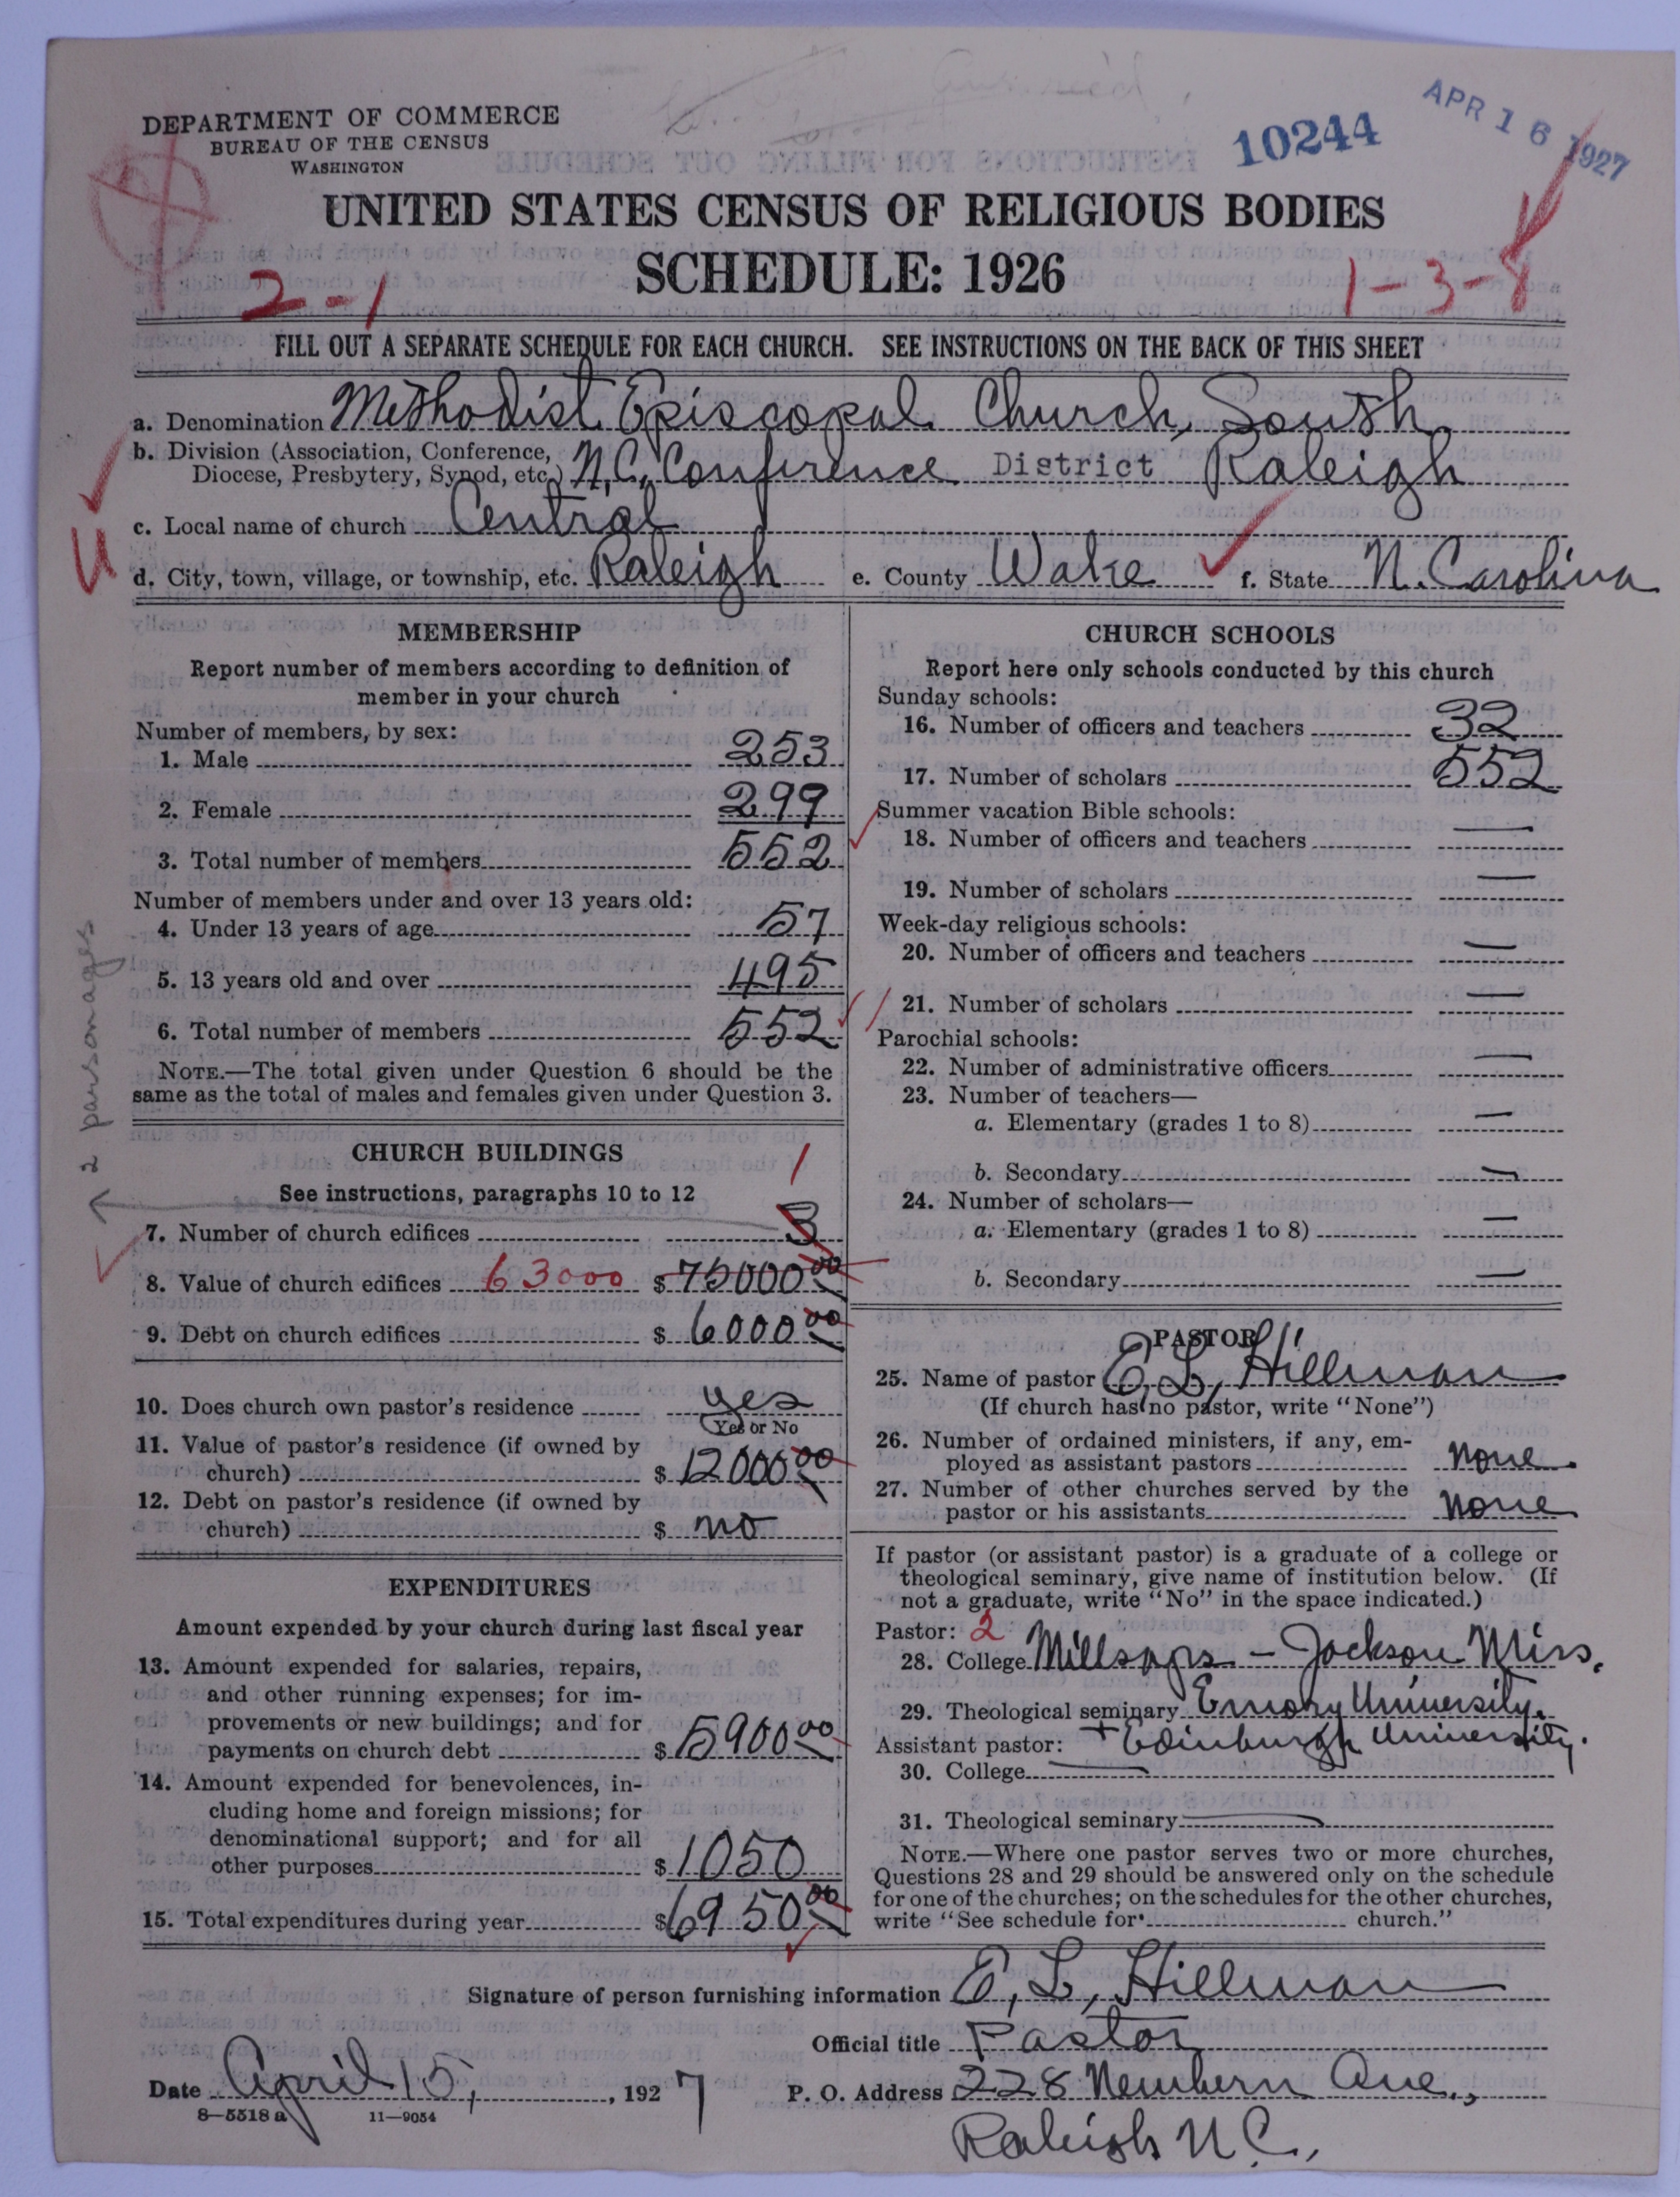 DEPARTMENT OF COMMERCE
BUREAU OF THE CENSUS
WASHINGTON
10244
APR 16 1927
UNITED STATES CENSUS OF RELIGIOUS BODIES
SCHEDULE: 1926
2-1
1-3-8
FILL OUT A SEPARATE SCHEDULE FOR EACH CHURCH. SEE INSTRUCTIONS ON THE BACK OF THIS SHEET
a. Denomination Methodist Episcopal Church, South
b. Division (Association, Conference,
Diocese, Presbytery, Synod, etc.) N.C. Conference District Raleigh
c. Local name of church Central
d. City, town, village, or township, etc. Raleigh e. County Wake f. State N. Carolina
MEMBERSHIP
Report number of members according to definition of
member in your church
Number of members, by sex:
1. Male 253
2. Female 299
3. Total number of members 552
Number of members under and over 13 years old:
4. Under 13 years of age 57
5. 13 years old and over 495
6. Total number of members 552
NOTE.—The total given under Question 6 should be the
same as the total of males and females given under Question 3.
2 parsonages
CHURCH BUILDINGS
See instructions, paragraphs 10 to 12
1
7. Number of church edifices 3
8. Value of church edifices 63000 $ 75000.00
9. Debt on church edifices $ 6000.00
10. Does church own pastor's residence yes
Yes or No
11. Value of pastor's residence (if owned by
church) $ 12000.00
12. Debt on pastor's residence (if owned by
church) $ no
EXPENDITURES
Amount expended by your church during last fiscal year
13. Amount expended for salaries, repairs,
and other running expenses; for im-
provements or new buildings; and for
payments on church debt $ 5900.00
14. Amount expended for benevolences, in-
cluding home and foreign missions; for
denominational support; and for all
other purposes $ 1050
15. Total expenditures during year $ 6950.00
CHURCH SCHOOLS
Report here only schools conducted by this church
Sunday schools:
16. Number of officers and teachers 32
17. Number of scholars 552
Summer vacation Bible schools:
18. Number of officers and teachers —
19. Number of scholars —
Week-day religious schools:
20. Number of officers and teachers —
21. Number of scholars —
Parochial schools:
22. Number of administrative officers —
23. Number of teachers—
a. Elementary (grades 1 to 8) —
b. Secondary —
24. Number of scholars—
a. Elementary (grades 1 to 8) —
b. Secondary —
PASTOR
25. Name of pastor E. L. Hillman
(If church has no pastor, write "None")
26. Number of ordained ministers, if any, em-
ployed as assistant pastors none
27. Number of other churches served by the
pastor or his assistants none
If pastor (or assistant pastor) is a graduate of a college or
theological seminary, give name of institution below. (If
not a graduate, write "No" in the space indicated.)
Pastor: 2
28. College Millsaps - Jackson Miss.
29. Theological seminary Emory University.
Assistant pastor: + Edinburgh University.
30. College —
31. Theological seminary —
NOTE.—Where one pastor serves two or more churches,
Questions 28 and 29 should be answered only on the schedule
for one of the churches; on the schedules for the other churches,
write "See schedule for church."
Signature of person furnishing information E. L. Hillman
Official title Pastor
Date April 15, 1927 P. O. Address 228 Newbern Ave.,
8—5518 a 11—9054
Raleigh N.C.,